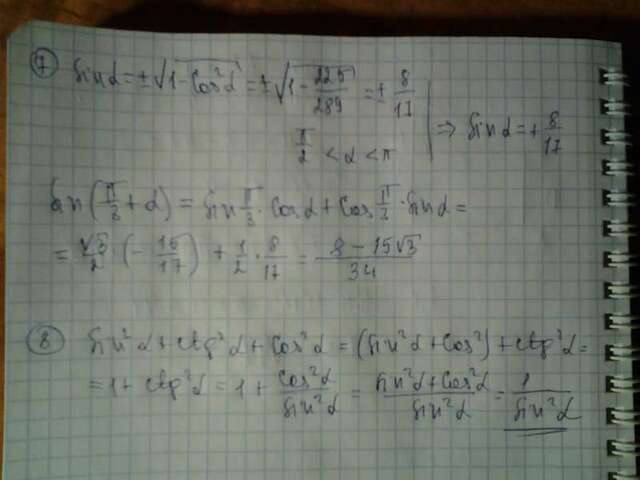 7 sinα = ±√(1-cos²α) = ±√(1-225/289) = ±8/17
π/2 < α < π ⇒ sinα = +8/17
sin(π/3+α) = sin π/3 · cosα + cos π/3 · sinα =
= √3/2 · (-15/17) + 1/2 · 8/17 = (8-15√3)/34
8 sin²α + ctg²α + cos²α = (sin²α + cos²) + ctg²α =
= 1 + ctg²α = 1 + cos²α/sin²α = (sin²α+cos²α)/sin²α = 1/sin²α